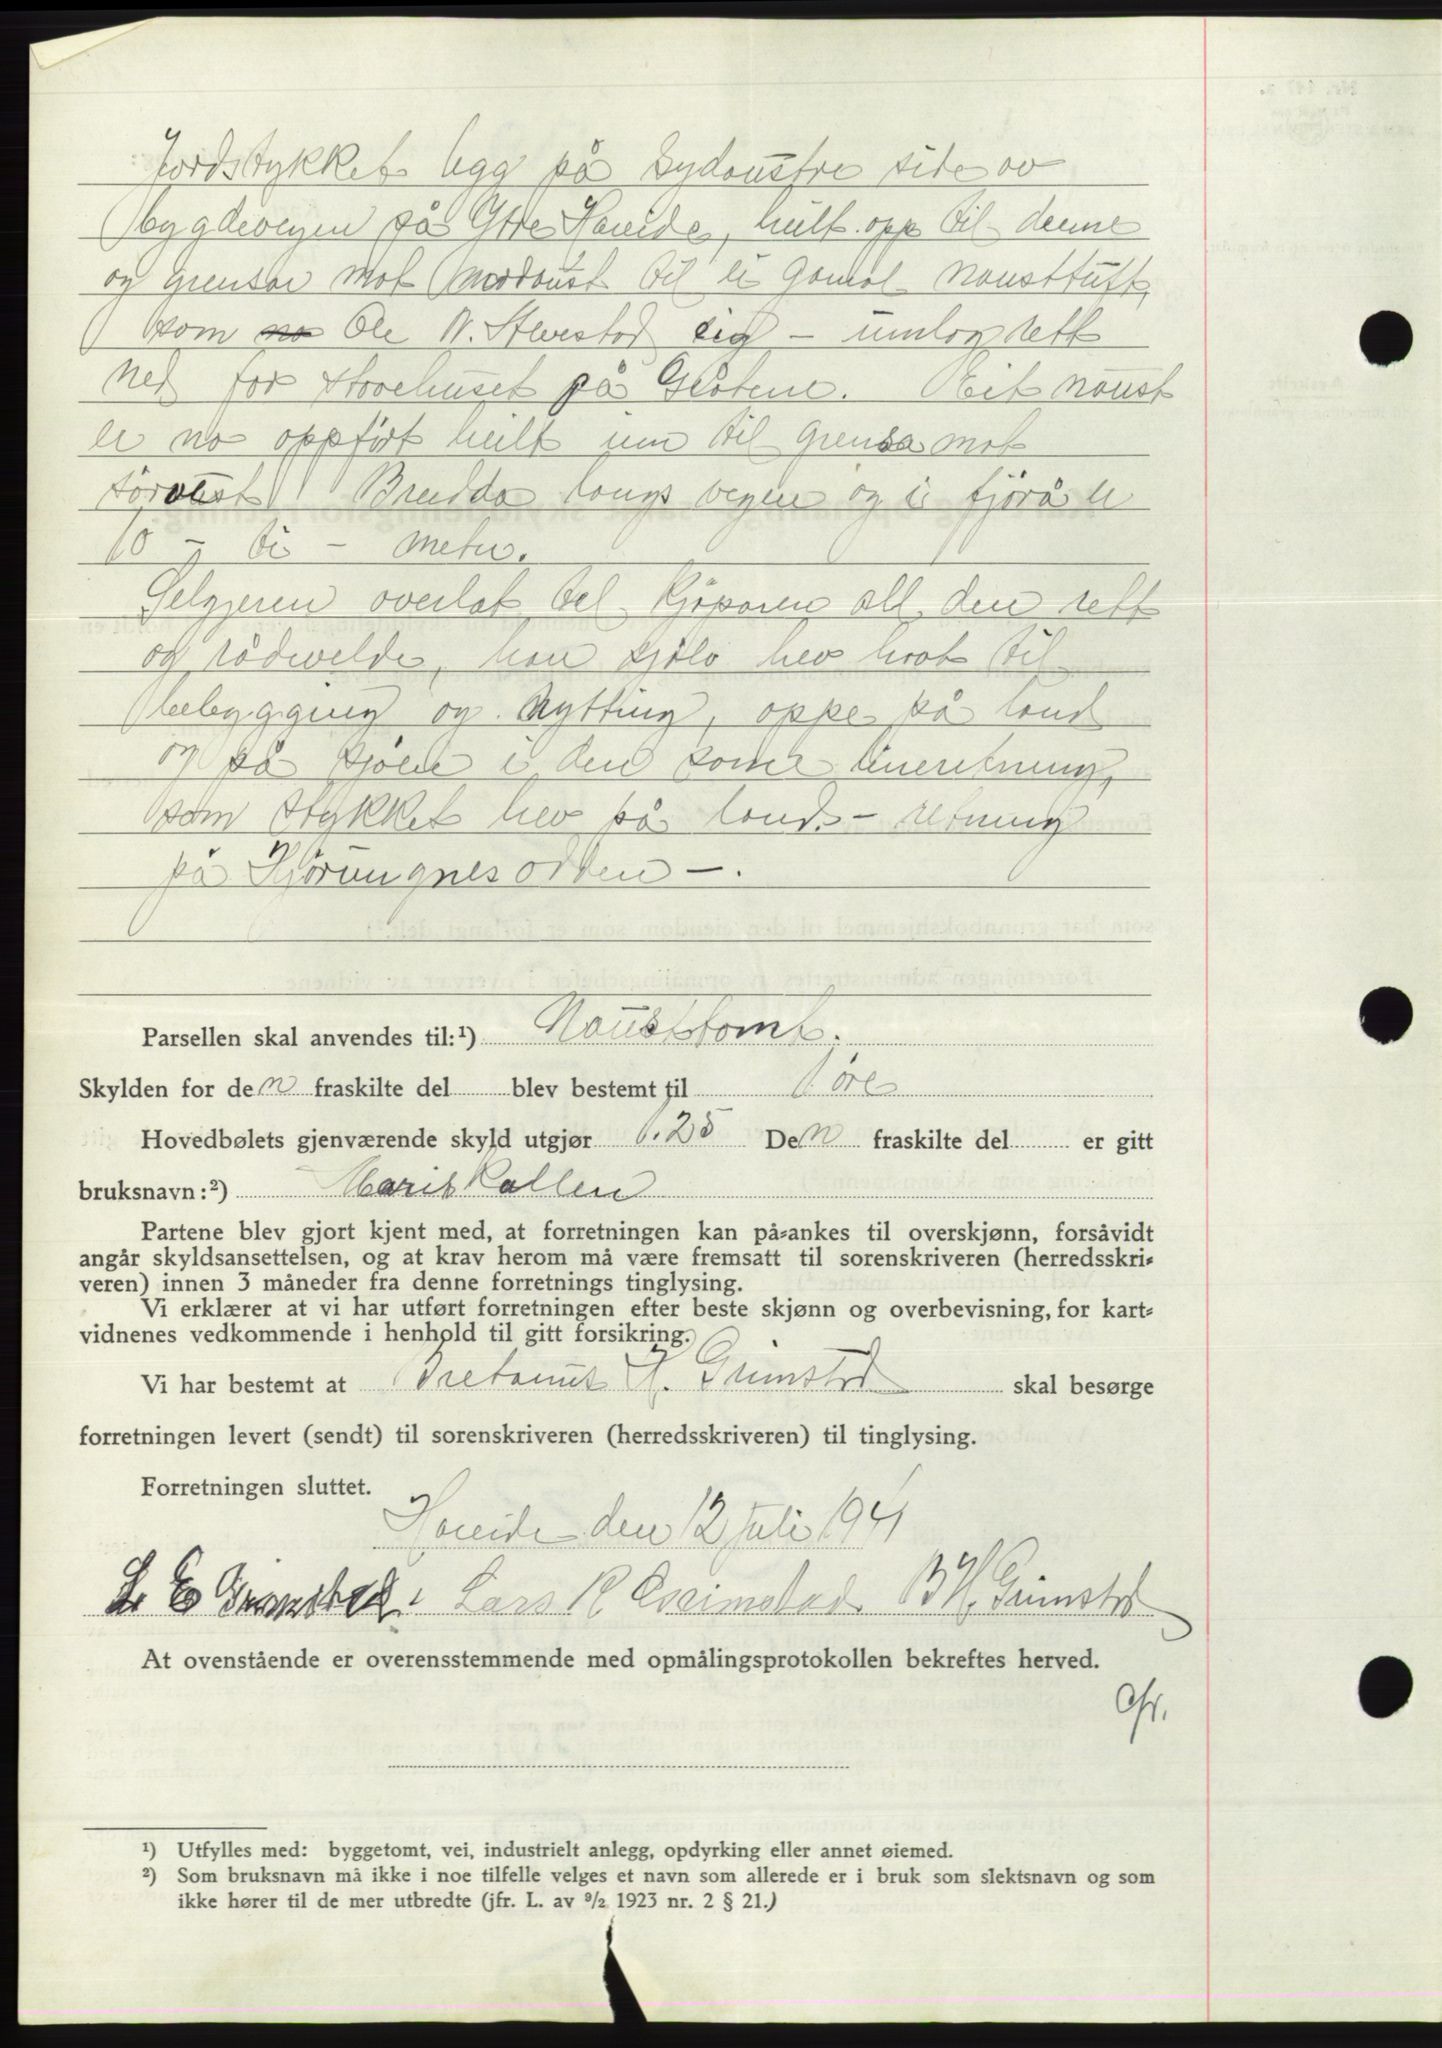 Jordstykket ligg på sydaustre side av
bygdevegen på Ytre Hareide, heilt opp til denne
og grensar mot nordaust til ei gamal nausttuft,
som Ole N. Alvestad eig – umlag rett
ned for stovehuset på Gjøtene. Eit naust
er no oppført heilt inn til grensa mot
sørvest. Breidda langs vegen og i fjøra er
10 – ti – meter.
Selgjeren overlet til kjøparen all den rett
og rådvelde, han sjølv hev havt til
bebygging og nytting, oppe på land
og på sjøen i den same lineretning,
som stykket hev på land. – retning
på Hjørungnesodden –.
Parsellen skal anvendes til:¹) Nausttomt.
Skylden for den fraskilte del blev bestemt til 1 øre
Hovedbølets gjenværende skyld utgjør 1.25 Den fraskilte del er gitt
bruksnavn:²) Marihallen
Partene blev gjort kjent med, at forretningen kan på-ankes til overskjønn, forsåvidt
angår skyldsansettelsen, og at krav herom må være fremsatt til sorenskriveren (herredsskri-
veren) innen 3 måneder fra denne forretnings tinglysing.
Vi erklærer at vi har utført forretningen efter beste skjønn og overbevisning, for kart-
vidnenes vedkommende i henhold til gitt forsikring.
Vi har bestemt at Bretanus H. Grimstad skal besørge
forretningen levert (sendt) til sorenskriveren (herredsskriveren) til tinglysing.
Forretningen sluttet.
Hareide den 12 juli 1941
L E Grimstad. Lars R Grimstad B H. Grimstad
At ovenstående er overensstemmende med opmålingsprotokollen bekreftes herved.
Cfr.
¹) Utfylles med: byggetomt, vei, industrielt anlegg, opdyrking eller annet øiemed.
²) Som bruksnavn må ikke i noe tilfelle velges et navn som allerede er i bruk som slektsnavn og som
ikke hører til de mer utbredte (jfr. L. av ⁹/₂ 1923 nr. 2 § 21.)